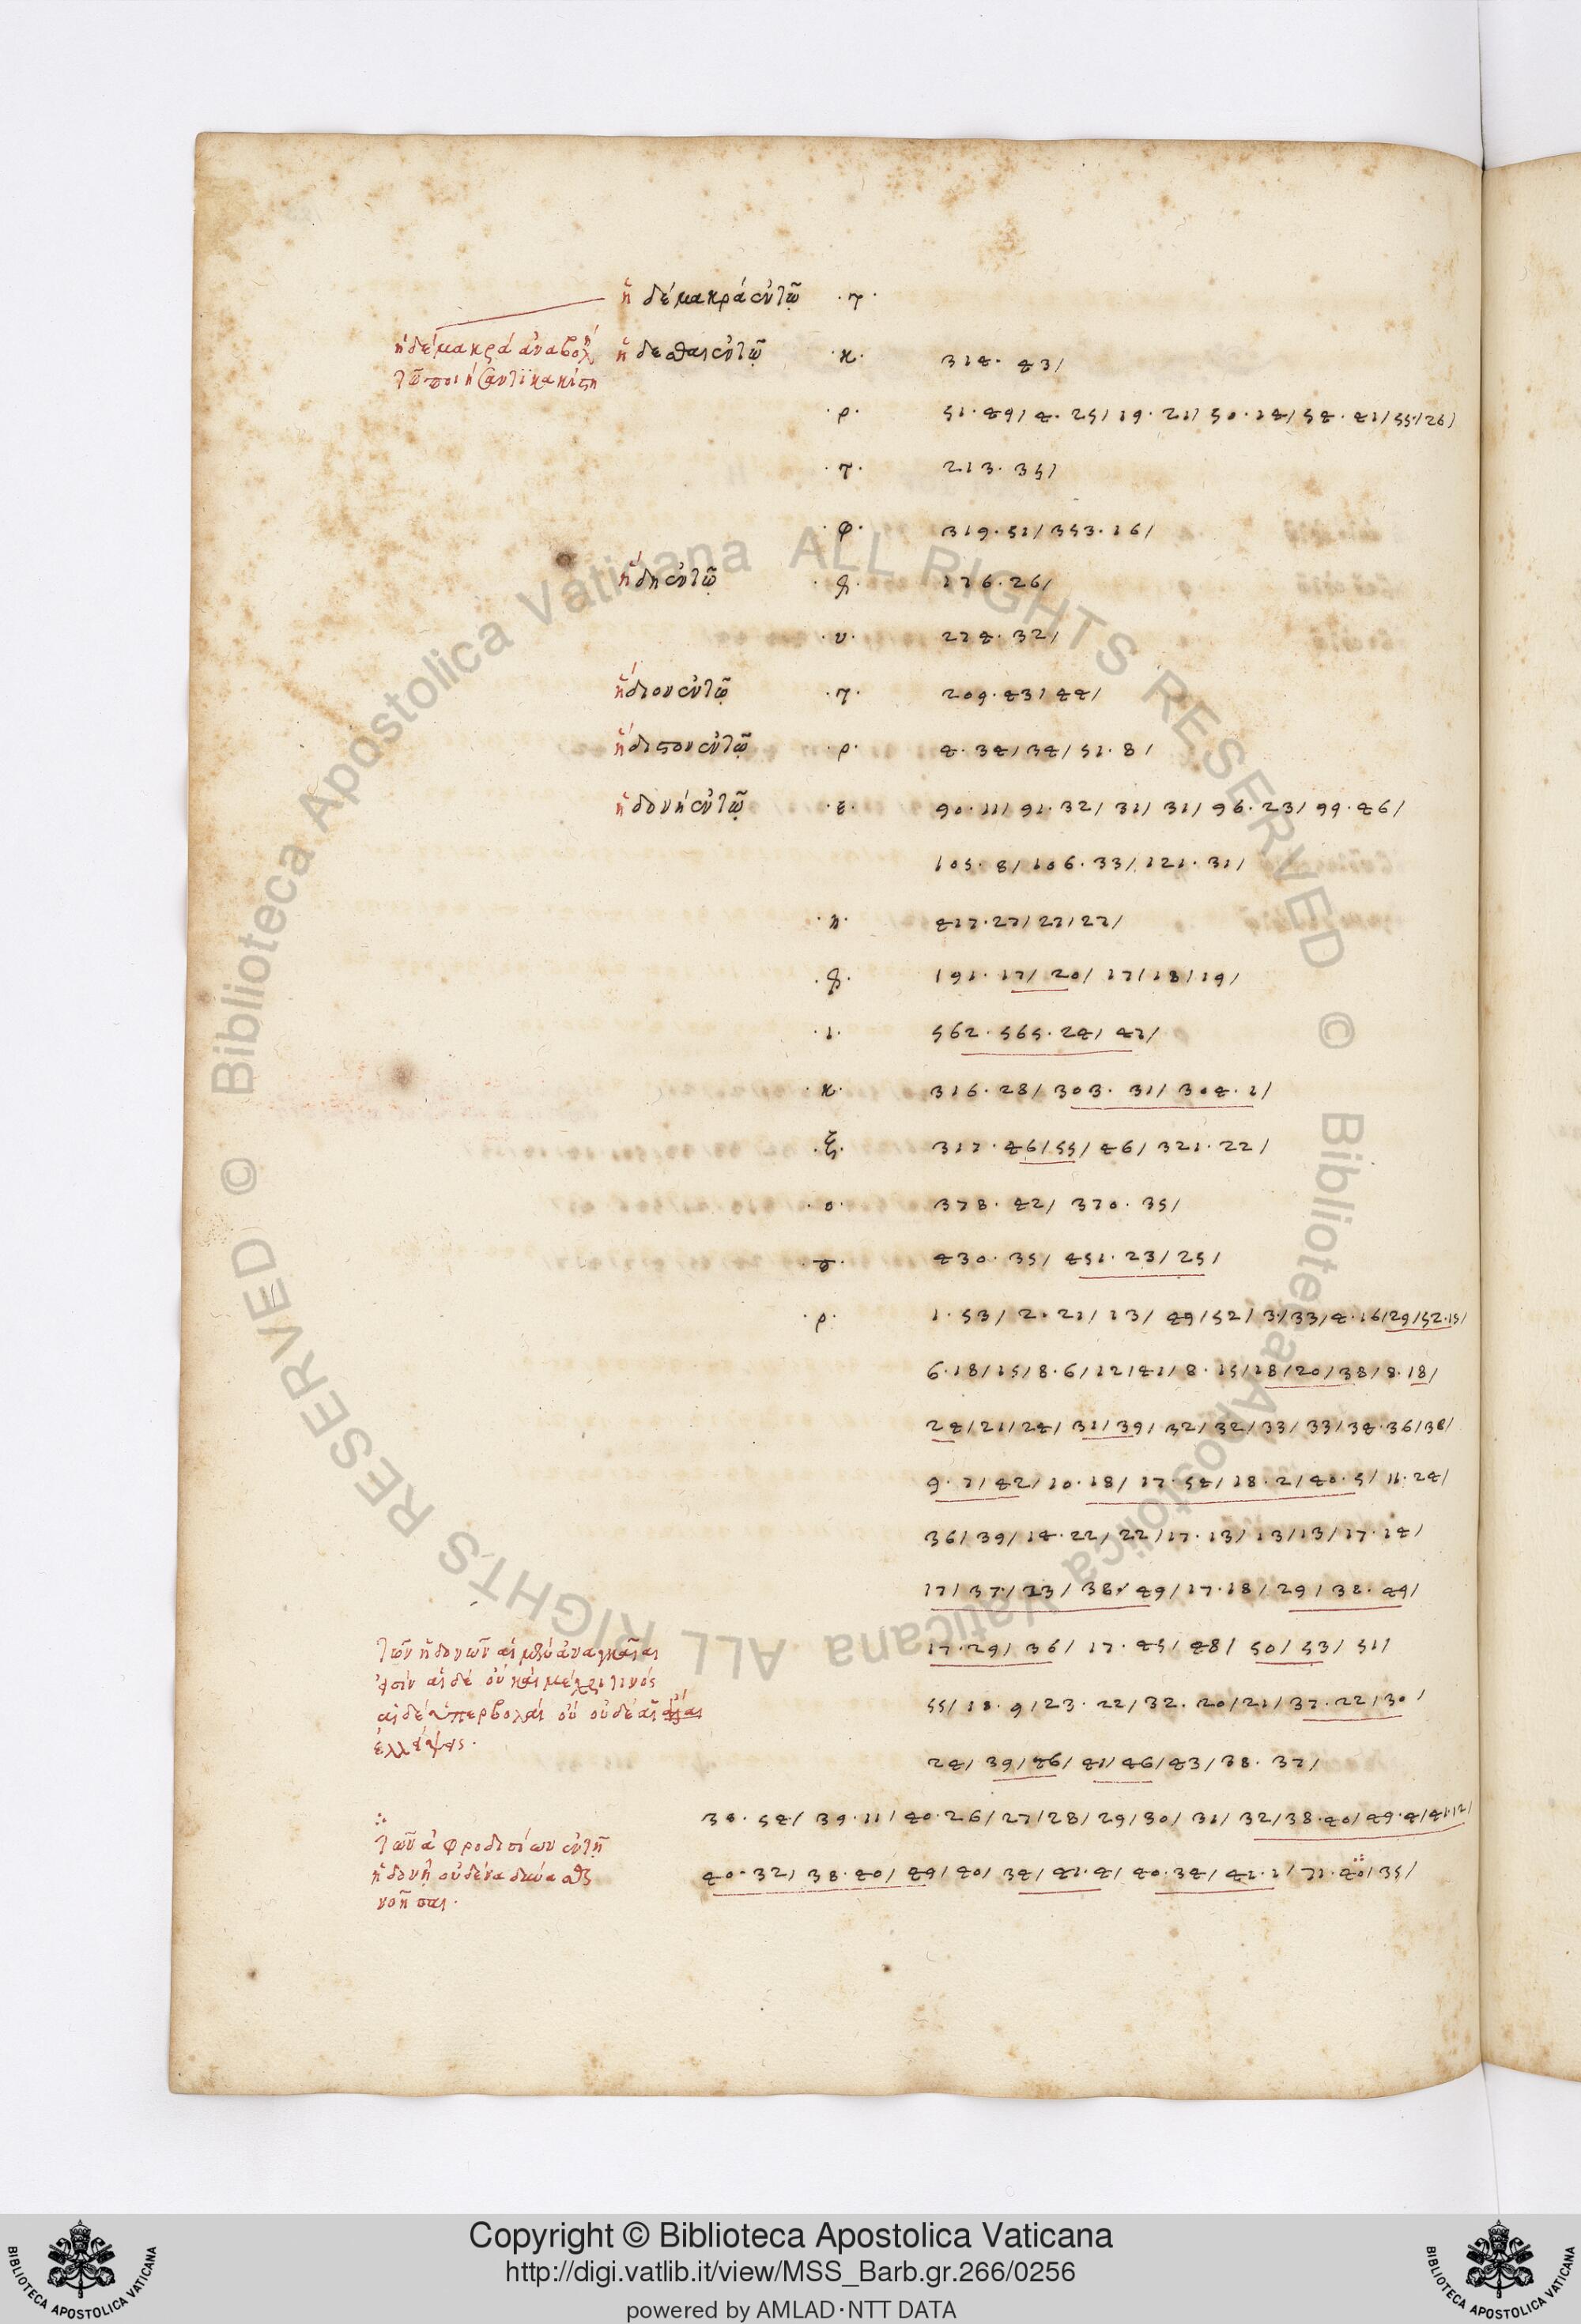 ἡ δὲ μακρὰ ἐν τῷ ·τ·
ἡ δὲ μακρὰ ἀναβολὴ
ἥδεσθαι ἐν τῷ ·κ· 314. 43/
τῷ ποιή
·ρ· 51. 49/ 4. 25/ 19. 21/ 50. 14/ 54. 41/ 55/ 26/
·τ· 213. 35/
·φ· 319. 51/ 353. 16/
ἤδη ἐν τῷ 176. 26/
·υ· 274. 32/
ἥδιον ἐν τῷ ·τ· 209. 43/ 44/
ἥδιστον ἐν τῷ ·ρ· 4. 34/ 34/ 51. 8/
ἡδονὴ ἐν τῷ ·ε· 90. 11/ 91. 32/ 31/ 31/ 96. 23/ 99. 46/
105. 8/ 106. 33/ 121. 31/
·η· 417. 27/ 27/ 27/
191. 17/ 20/ 17/ 18/ 19/
·ι· 562. 565. 24/ 47/
·κ· 316. 28/ 303. 31/ 304. 1/
·ξ· 317. 46/ 55/ 46/ 321. 22/
·ο· 378. 42/ 370. 35/
430. 35/ 451. 23/ 25/
·ρ· 1. 53/ 2. 21/ 13/ 49/ 52/ 3/ 33/ 4. 16/ 29/ 52. 15/
6. 18/ 15/ 8. 6/ 12/ 41/ 8. 15/ 18/ 20/ 38/ 8. 18/
24/ 21/ 24/ 31/ 39/ 32/ 32/ 33/ 33/ 34. 36/ 38/
9. 7/ 42/ 10. 18/ 17. 54/ 18. 2/ 40. 5/ 11. 24/
36/ 39/ 14. 22/ 22/ 17. 13/ 13/ 13/ 17. 14/
17/ 37/ 23/ 38/ 49/ 17. 18/ 29/ 38. 49/
τῶν ἡδονῶν αἱ μὲν ἀναγκαῖαι 17. 29/ 36/ 17. 45/ 48/ 50/ 53/ 51/
εἰσὶν αἱ δὲ οὐ καὶ μέχρι τινός
αἱ δὲ ὑπερβολαὶ οὐ οὐδὲ αἱ 55/ 18. 9/ 23. 22/ 32. 20/ 21/ 37. 22/ 30/
ἐλλείψεις.
24/ 39/ 46/ 41/ 46/ 43/ 38. 37/
38. 54/ 39. 11/ 40. 26/ 27/ 28/ 29/ 30/ 31/ 32/ 38. 40/ 49. 4/ 41. 12/
τῶν ἀφροδισίων ἐν τῇ
ἡδονῇ οὐδένα 40. 32/ 38. 40/ 49/ 40/ 34/ 41. 4/ 40. 34/ 41. 1/ 71. 40/ 35/
νοῆσαι.
© Biblioteca Apostolica Vaticana ALL RIGHTS RESERVED © Biblioteca Apostolica Vaticana ALL RIGHTS RESERVED
Copyright © Biblioteca Apostolica Vaticana
http://digi.vatlib.it/view/MSS_Barb.gr.266/0256
powered by AMLAD·NTT DATA
BIBLIOTECA APOSTOLICA VATICANA
BIBLIOTECA APOSTOLICA VATICANA